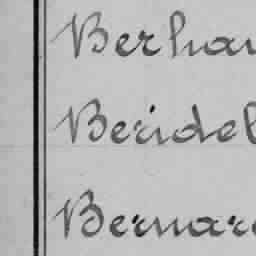 Berhau
Beridel
Bernard